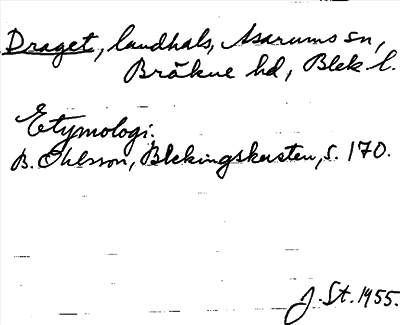 Draget, landhals, Asarums sn,
Bräkne hd, Blek l.
Etymologi:
B. Ohlsson, Blekingskusten, s. 170.
J. St. 1955.